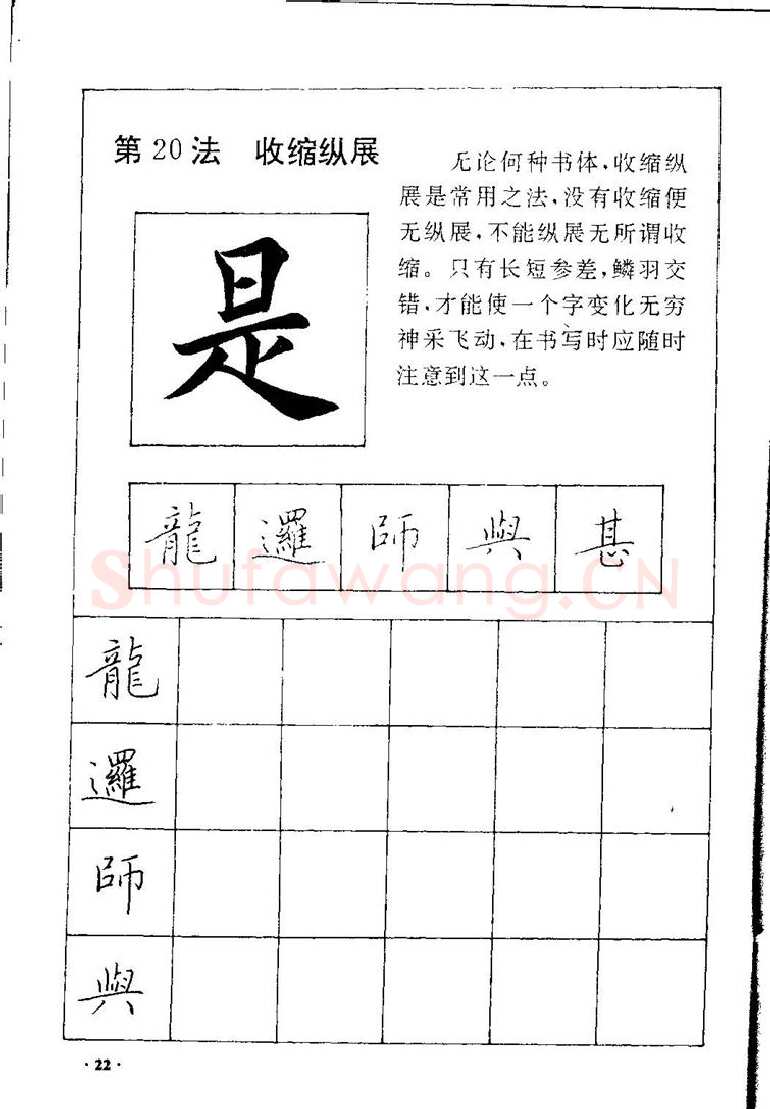 第20法 收缩纵展
无论何种书体,收缩纵
展是常用之法,没有收缩便
无纵展,不能纵展无所谓收
缩。只有长短参差,鳞羽交
错,才能使一个字变化无穷
神采飞动、在书写时应随时
注意到这一点。
是
龍 邏 師 與 甚
Shufawang.CN
龍
邏
師
與
·22·